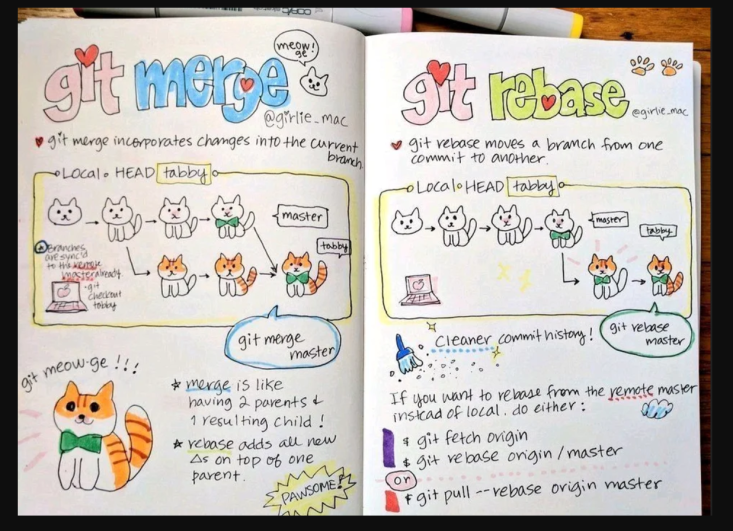 meow!
ge
git merge
@girlie_mac
git merge incorporates changes into the current
branch.
Local HEAD tabby
master
tabby
Branches
are sync'd
to the remote
master already
git
checkout
tabby
git merge
master
git meow-ge !!!
merge is like
having 2 parents &
1 resulting child!
rebase adds all new
Δs on top of one
parent.
PAWSOME!
git rebase
@girlie_mac
git rebase moves a branch from one
commit to another.
Local HEAD tabby
master
tabby
git rebase
master
Cleaner commit history!
If you want to rebase from the remote master
instead of local. do either:
$ git fetch origin
$ git rebase origin/master
or
$ git pull --rebase origin master